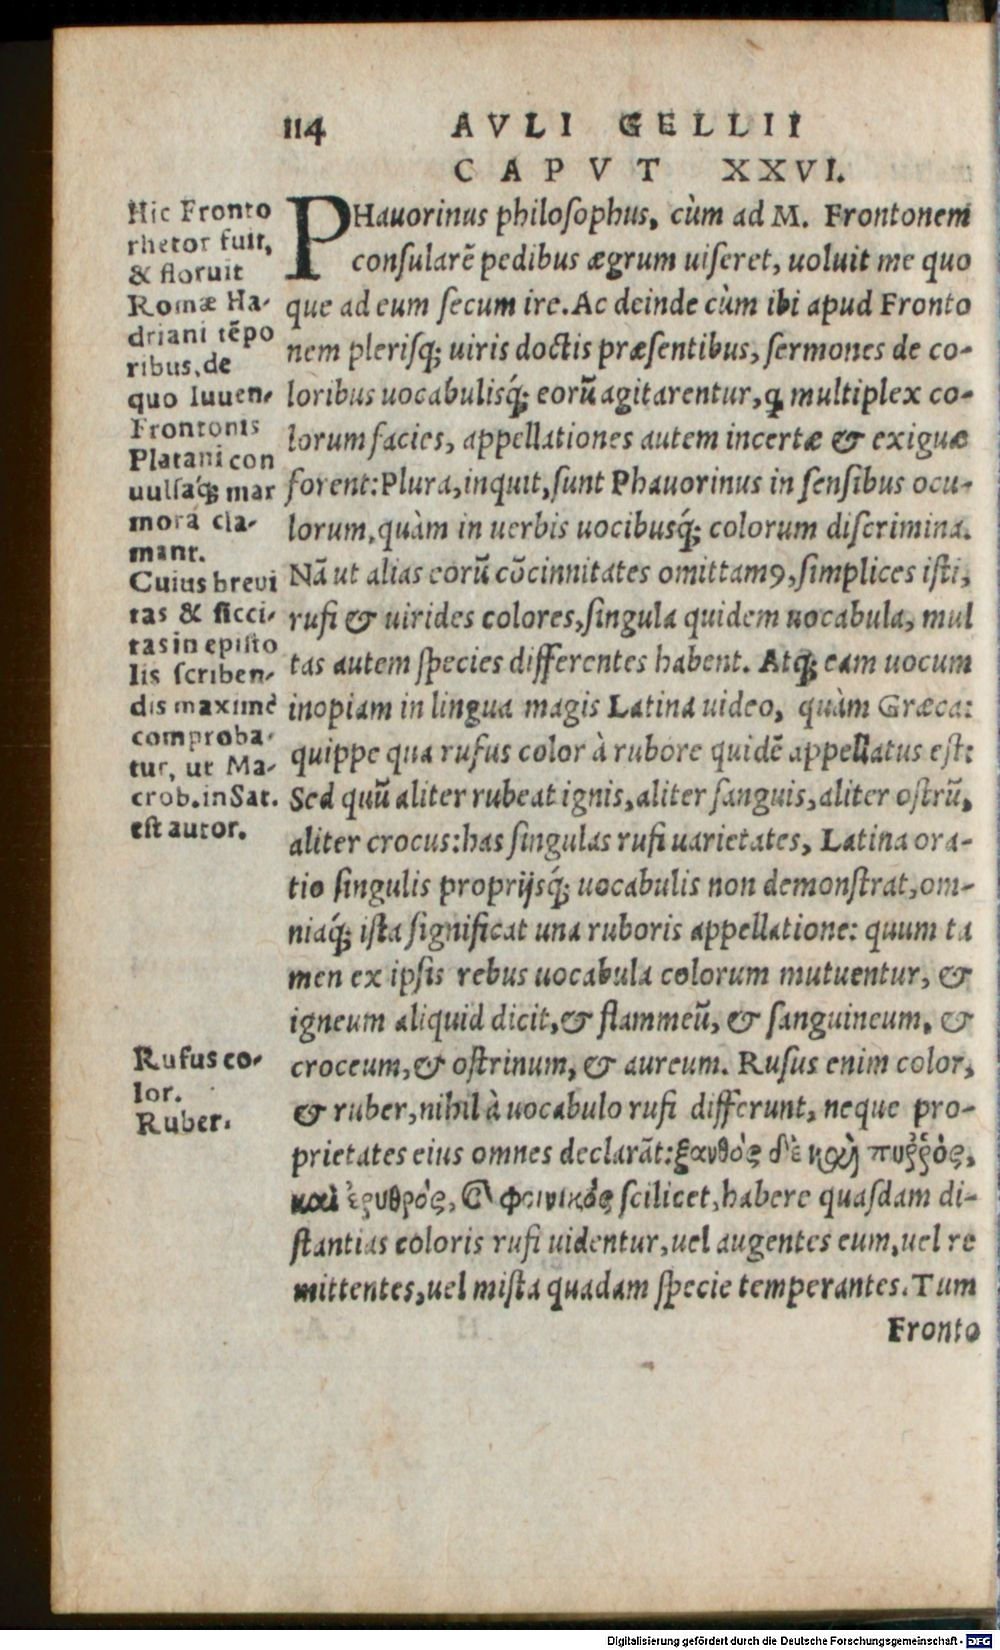 114 AVLI GELLII
CAPVT XXVI.
Hic Fronto
rhetor fuit,
& floruit
Romæ Ha-
driani tēpo
ribus, de
quo Iuuen-
Frontonis
Platani con
uulsaq́; mar
mora cla-
mant.
Cuius breui
tas & sicci-
tas in episto
lis scriben-
dis maximè
comproba-
tur, ut Ma-
crob. in Sat.
est autor.
Rufus co-
lor.
Ruber.
PHauorinus philosophus, cùm ad M. Frontonem
consularē pedibus ægrum uiseret, uoluit me quo
que ad eum secum ire. Ac deinde cùm ibi apud Fronto
nem plerisq; uiris doctis præsentibus, sermones de co-
loribus uocabulisq́; eorū agitarentur, ꝙ multiplex co-
lorum facies, appellationes autem incertæ & exiguæ
forent: Plura, inquit, sunt Phauorinus in sensibus ocu-
lorum, quàm in uerbis uocibusq́; colorum discrimina.
Nā ut alias eorū cōcinnitates omittamꝰ, simplices isti,
rufi & uirides colores, singula quidem uocabula, mul
tas autem species differentes habent. Atq; eam uocum
inopiam in lingua magis Latina uideo, quàm Græca:
quippe qua rufus color à rubore quidē appellatus est:
Sed quū aliter rubeat ignis, aliter sanguis, aliter ostrū,
aliter crocus: has singulas rufi uarietates, Latina ora-
tio singulis proprijsq́; uocabulis non demonstrat, om-
niaq́; ista significat una ruboris appellatione: quum ta
men ex ipsis rebus uocabula colorum mutuentur, &
igneum aliquid dicit, & flammeū, & sanguineum, &
croceum, & ostrinum, & aureum. Rufus enim color,
& ruber, nihil à uocabulo rufi differunt, neque pro-
prietates eius omnes declarāt: ξανθὸς δὲ καὶ πυῤῥὸς,
καὶ ἐρυθρὸς, & φοινικὸς scilicet, habere quasdam di-
stantias coloris rufi uidentur, uel augentes eum, uel re
mittentes, uel mista quadam specie temperantes. Tum
Fronto
Digitalisierung gefördert durch die Deutsche Forschungsgemeinschaft - DFG